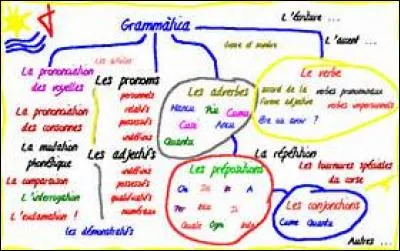 Grammàtica
L'écriture ...
L'accent ...
Les articles
La prononciation
des voyelles
Les pronoms
personnels
relatifs
possessifs
indéfinis
Les adverbes
Le verbe
accord de la
forme adjective
verbes pronominaux
verbes impersonnels
Être ou avoir ?
La prononciation
des consonnes
La mutation
phonétique
Les adjectifs
indéfinis
possessifs
qualificatifs
numéraux
La comparaison
L'interrogation
L'exclamation !
les démonstratifs
Cusì
Ancu
Quantu
Les prépositions
Da
In
A
Per
Quale
Ogni
La répétition
Les tournures spéciales
du corse
Les conjonctions
Cume Quantu
Autres ...